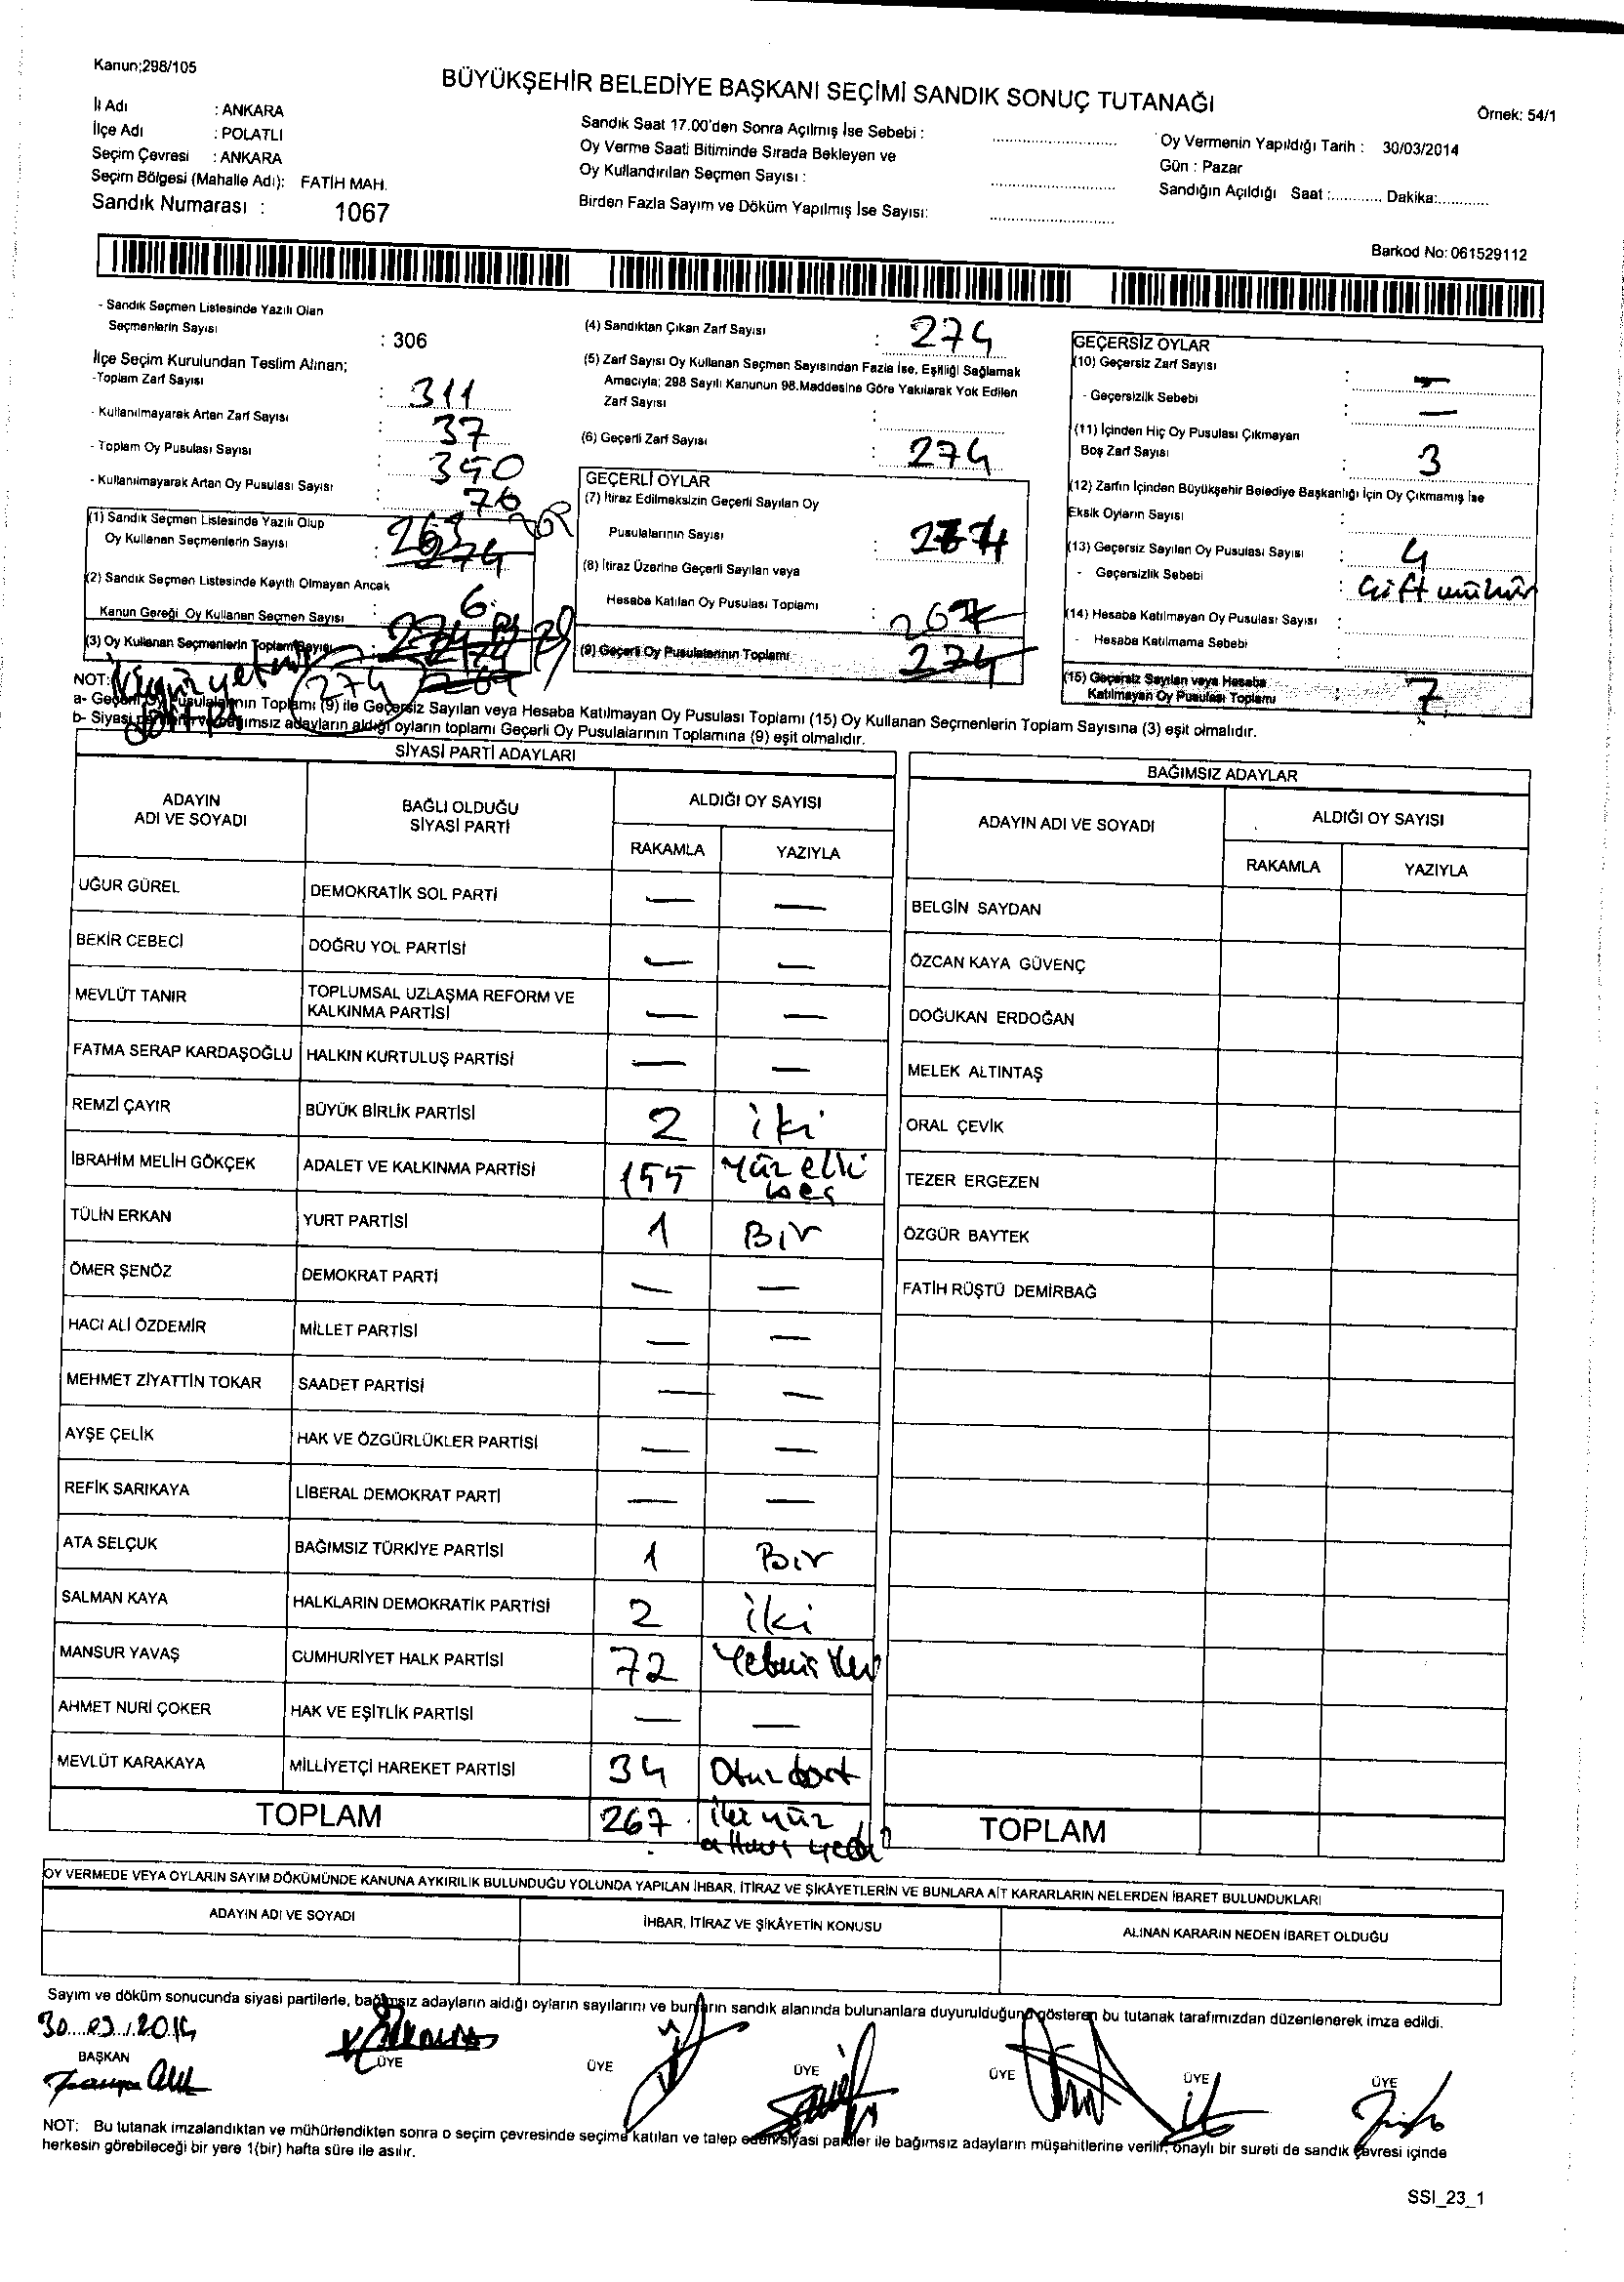 Kanun;298/105
BÜYÜKŞEHİR BELEDİYE BAŞKANI SEÇİMİ SANDIK SONUÇ TUTANAĞI
Örnek: 54/1
İl Adı : ANKARA
İlçe Adı : POLATLI
Seçim Çevresi : ANKARA
Seçim Bölgesi (Mahalle Adı): FATİH MAH.
Sandık Numarası : 1067
Sandık Saat 17.00'den Sonra Açılmış İse Sebebi :
Oy Verme Saati Bitiminde Sırada Bekleyen ve
Oy Kullandırılan Seçmen Sayısı :
Birden Fazla Sayım ve Döküm Yapılmış İse Sayısı:
Oy Vermenin Yapıldığı Tarih : 30/03/2014
Gün : Pazar
Sandığın Açıldığı Saat :............ Dakika:............
Barkod No: 061529112
- Sandık Seçmen Listesinde Yazılı Olan
Seçmenlerin Sayısı : 306
İlçe Seçim Kurulundan Teslim Alınan;
-Toplam Zarf Sayısı : 311
- Kullanılmayarak Artan Zarf Sayısı : 37
- Toplam Oy Pusulası Sayısı : 350
- Kullanılmayarak Artan Oy Pusulası Sayısı : 76
(1) Sandık Seçmen Listesinde Yazılı Olup
Oy Kullanan Seçmenlerin Sayısı :
(2) Sandık Seçmen Listesinde Kayıtlı Olmayan Ancak
Kanun Gereği Oy Kullanan Seçmen Sayısı : 6
(3) Oy Kullanan Seçmenlerin Toplam Sayısı : 274
(4) Sandıktan Çıkan Zarf Sayısı : 274
(5) Zarf Sayısı Oy Kullanan Seçmen Sayısından Fazla İse, Eşitliği Sağlamak
Amacıyla; 298 Sayılı Kanunun 98.Maddesine Göre Yakılarak Yok Edilen
Zarf Sayısı :
(6) Geçerli Zarf Sayısı : 274
GEÇERLİ OYLAR
(7) İtiraz Edilmeksizin Geçerli Sayılan Oy
Pusulalarının Sayısı : 274
(8) İtiraz Üzerine Geçerli Sayılan veya
Hesaba Katılan Oy Pusulası Toplamı : 267
(9) Geçerli Oy Pusulalarının Toplamı : 274
GEÇERSİZ OYLAR
(10) Geçersiz Zarf Sayısı : —
- Geçersizlik Sebebi : —
(11) İçinden Hiç Oy Pusulası Çıkmayan
Boş Zarf Sayısı : 3
(12) Zarfın İçinden Büyükşehir Belediye Başkanlığı İçin Oy Çıkmamış İse
Eksik Oyların Sayısı :
(13) Geçersiz Sayılan Oy Pusulası Sayısı : 4
- Geçersizlik Sebebi : Çift mühür
(14) Hesaba Katılmayan Oy Pusulası Sayısı :
- Hesaba Katılmama Sebebi :
(15) Geçersiz Sayılan veya Hesaba
Katılmayan Oy Pusulası Toplamı : 7
NOT:
a- Geçerli Oy Pusulalarının Toplamı (9) ile Geçersiz Sayılan veya Hesaba Katılmayan Oy Pusulası Toplamı (15) Oy Kullanan Seçmenlerin Toplam Sayısına (3) eşit olmalıdır.
b- Siyasi partilerin ve bağımsız adayların aldığı oyların toplamı Geçerli Oy Pusulalarının Toplamına (9) eşit olmalıdır.
SİYASİ PARTİ ADAYLARI
ADAYIN ADI VE SOYADI
BAĞLI OLDUĞU SİYASİ PARTİ
ALDIĞI OY SAYISI
RAKAMLA YAZIYLA
UĞUR GÜREL DEMOKRATİK SOL PARTİ — —
BEKİR CEBECİ DOĞRU YOL PARTİSİ — —
MEVLÜT TANIR TOPLUMSAL UZLAŞMA REFORM VE KALKINMA PARTİSİ — —
FATMA SERAP KARDAŞOĞLU HALKIN KURTULUŞ PARTİSİ — —
REMZİ ÇAYIR BÜYÜK BİRLİK PARTİSİ 2 iki
İBRAHİM MELİH GÖKÇEK ADALET VE KALKINMA PARTİSİ 155 Yüz elli beş
TÜLİN ERKAN YURT PARTİSİ 1 Bir
ÖMER ŞENÖZ DEMOKRAT PARTİ — —
HACI ALİ ÖZDEMİR MİLLET PARTİSİ — —
MEHMET ZİYATTİN TOKAR SAADET PARTİSİ — —
AYŞE ÇELİK HAK VE ÖZGÜRLÜKLER PARTİSİ — —
REFİK SARIKAYA LİBERAL DEMOKRAT PARTİ — —
ATA SELÇUK BAĞIMSIZ TÜRKİYE PARTİSİ 1 Bir
SALMAN KAYA HALKLARIN DEMOKRATİK PARTİSİ 2 iki
MANSUR YAVAŞ CUMHURİYET HALK PARTİSİ 72 Yetmiş iki
AHMET NURİ ÇOKER HAK VE EŞİTLİK PARTİSİ — —
MEVLÜT KARAKAYA MİLLİYETÇİ HAREKET PARTİSİ 34 Otuz dört
TOPLAM 267 iki yüz altmış yedi
BAĞIMSIZ ADAYLAR
ADAYIN ADI VE SOYADI
ALDIĞI OY SAYISI
RAKAMLA YAZIYLA
BELGİN SAYDAN
ÖZCAN KAYA GÜVENÇ
DOĞUKAN ERDOĞAN
MELEK ALTINTAŞ
ORAL ÇEVİK
TEZER ERGEZEN
ÖZGÜR BAYTEK
FATİH RÜŞTÜ DEMİRBAĞ
TOPLAM
OY VERMEDE VEYA OYLARIN SAYIM DÖKÜMÜNDE KANUNA AYKIRILIK BULUNDUĞU YOLUNDA YAPILAN İHBAR, İTİRAZ VE ŞİKÂYETLERİN VE BUNLARA AİT KARARLARIN NELERDEN İBARET BULUNDUKLARI
ADAYIN ADI VE SOYADI
İHBAR, İTİRAZ VE ŞİKÂYETİN KONUSU
ALINAN KARARIN NEDEN İBARET OLDUĞU
Sayım ve döküm sonucunda siyasi partilerle, bağımsız adayların aldığı oyların sayılarını ve bunların sandık alanında bulunanlara duyurulduğunu gösteren bu tutanak tarafımızdan düzenlenerek imza edildi.
30.03.2014
BAŞKAN ÜYE ÜYE ÜYE ÜYE ÜYE ÜYE
NOT: Bu tutanak imzalandıktan ve mühürlendikten sonra o seçim çevresinde seçime katılan ve talep eden siyasi partiler ile bağımsız adayların müşahitlerine verilir, onaylı bir sureti de sandık çevresi içinde
herkesin görebileceği bir yere 1(bir) hafta süre ile asılır.
SSI_23_1